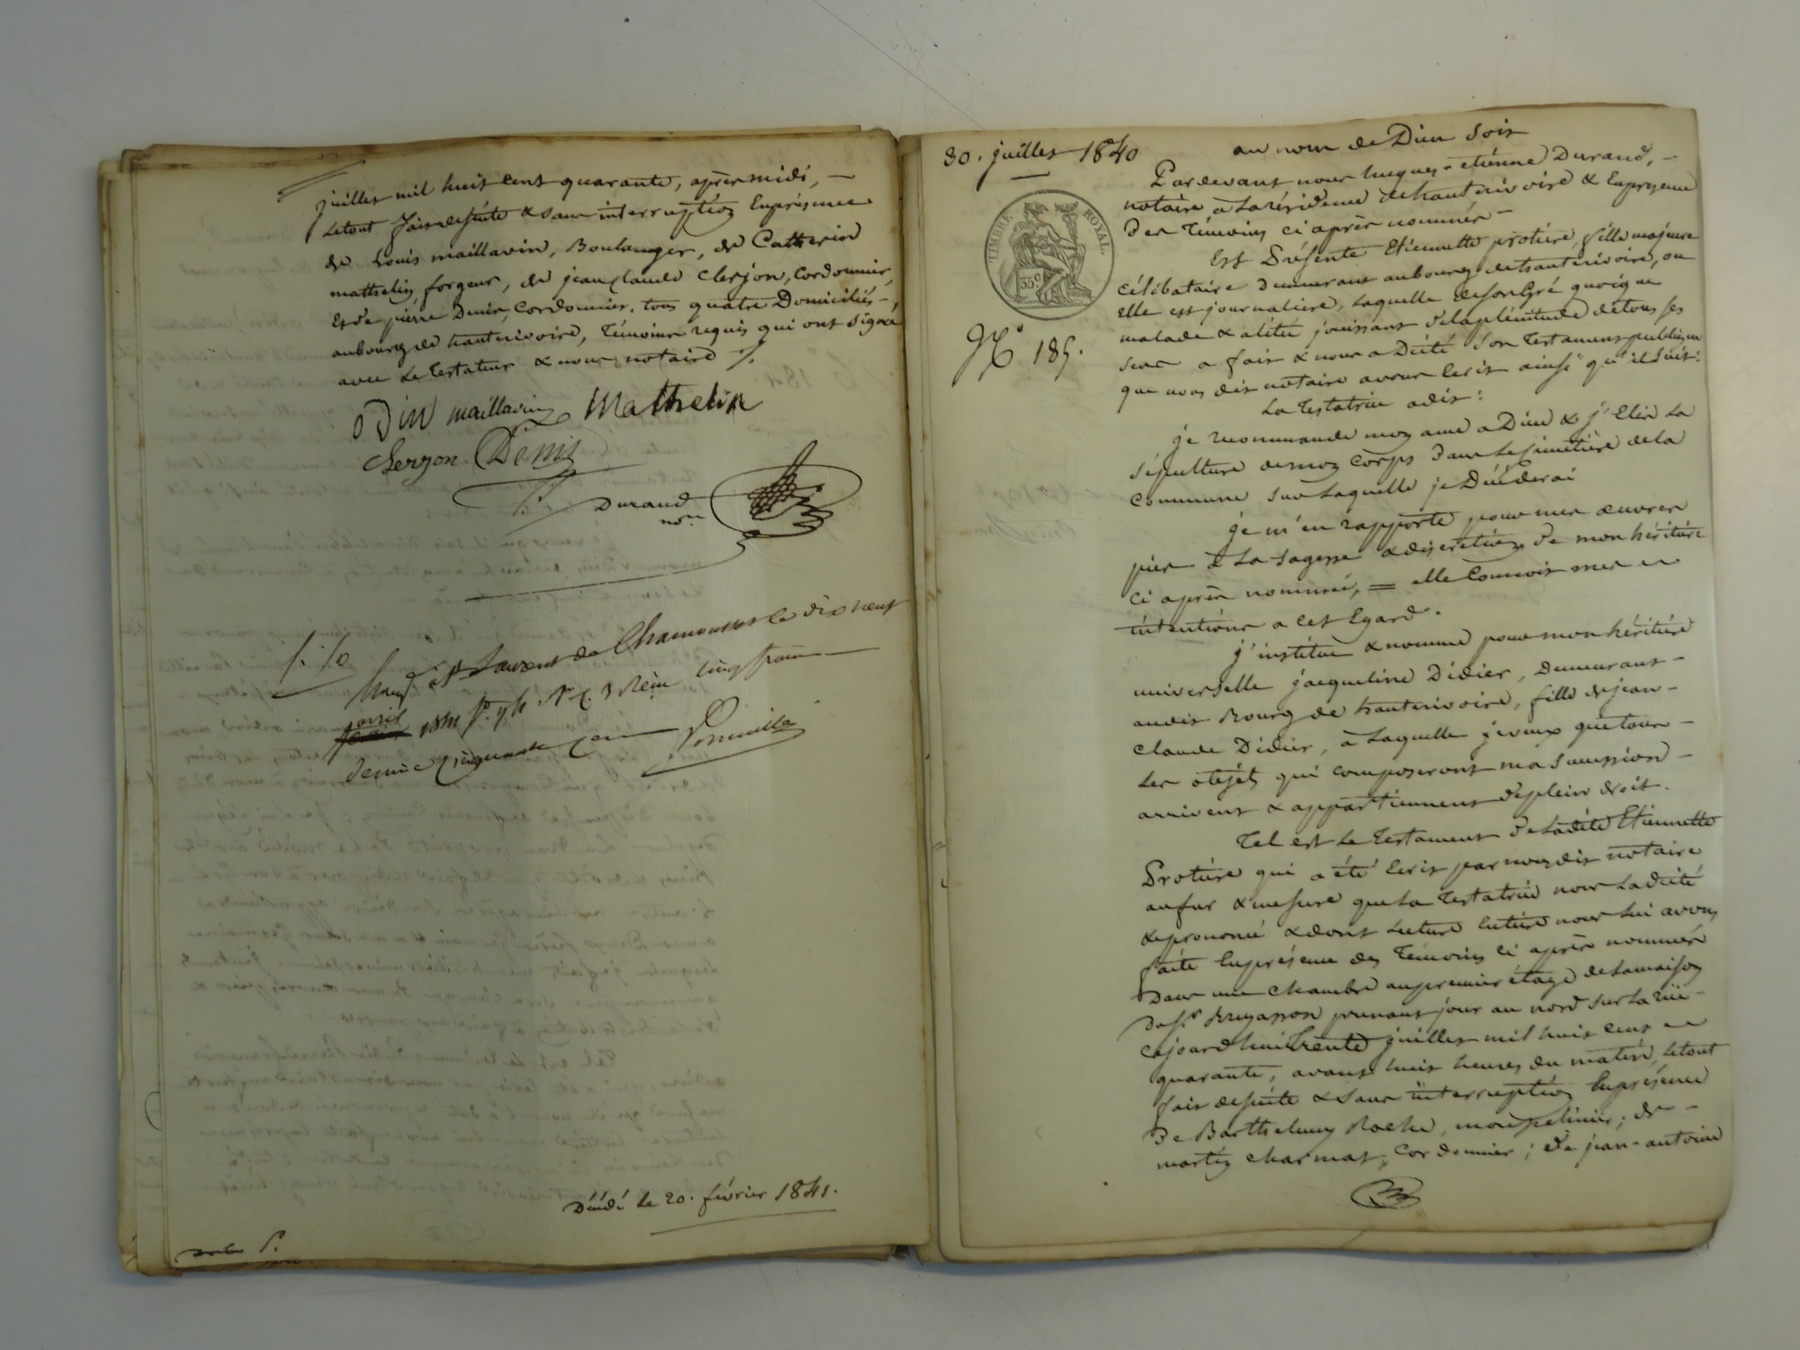 juillet mil huit cent quarante, après midi, —
Letout fait desuite & sans interruption Enprésence
de Louis maillavin, Boulanger, de Catherin
matthelin, forgeur, de jean claude Clerjon, Cordonnier,
Et de pierre Denis, Cordonnier, tous quatre Domiciliés —
aubourg de hauterivoire, Témoins requis qui ont signé
avec Le testateur & nous notaire ./.
Odin maillavin Mathelin
Cherjon Denis
Durand
nore
St Laurent de Chamousset le dix neuf
avril cinq francs
decime cinquante cent
Décédé Le 20. février 1841.
30. juillet 1840
TIMBRE ROYAL
35c
No 185.
au nom de Dieu soit
Pardevant nous hugues-etiénne Durand, —
notaire à La résidence de hauterivoire & Enprésence
Des Témoins ci après nommés —
Est Présente Etiennette protière, fille majeure
célibataire demeurant aubourg de hauterivoire, ou
Elle est journalière, Laquelle de son Gré quoique
malade & alitée jouissant de la plénitude de tous ses
sens a fait & nous a Dicté son Testament public,
que nous dit notaire avons Ecrit ainsi qu'il suit:
La Testatrice a dit:
je recommande mon ame a Dieu & j'Elis La
Sépulture de mon Corps dans Le Cimetière de la
Commune sur Laquelle je Décéderai
je m'en rapporte pour mes œuvres
pies à La Sagesse & discrétion de mon héritière
ci après nommée, = elle Connoit mes
intentions a cet Egard.
j'institue & nomme pour mon héritière
universelle jacqueline Didier, Demeurant —
audit Bourg de hauterivoire, fille de jean —
Claude Didier, à Laquelle je veux que tous —
Les objets qui composeront ma succession —
arrivent & appartiennent de plein droit.
Tel est Le Testament de Ladite Etiennette
Protière qui a été Ecrit par nous dit notaire
au fur & mesure que La Testatrice nous La dicté
& prononcé & dont Lecture Entière nous Lui avons
faite Enprésence des Témoins ci après nommés
Dans une chambre au premier étage de La maison
du Sr Bruyasson prenant jour au nord sur La rue —
cejourd'hui trente juillet mil huit cent
quarante, avant huit heures du matin, Letout
fait desuite & sans interruption Enprésence
De Barthelemy Roche, ; de —
martin charmat, Cordonnier; de jean-antoine